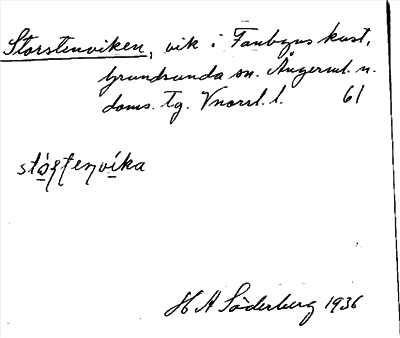 Storstenviken, vik i Fanbyns kust,
Grundsunda sn. Ångerml. n.
doms. tg. Vnorrl. l. 61
stórstenvíka
H A Söderberg 1936